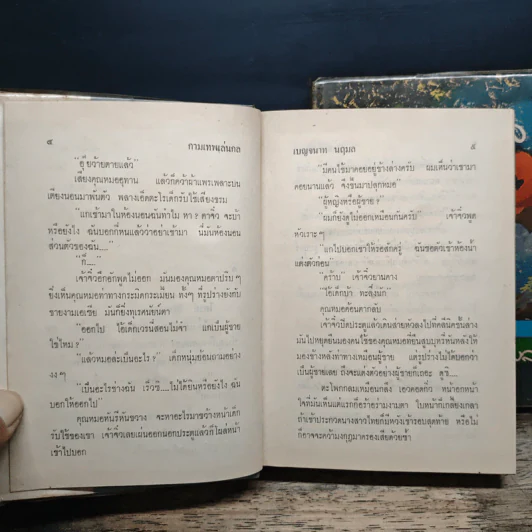 ๔ กามเทพเล่นกล
"อุ๊ยว้ายตายแล้ว"
เสียงคุณหมออุทาน แล้วก็คว้าผ้าแพรเพลาะบน
เตียงนอนมาพันตัว พลางเอ็ดตะโรเด็กรับใช้เสียงขรม
"แกเข้ามาในห้องนอนฉันทำไม หา ? ตาจิ๋ว จะบ้า
หรือยังไง ฉันบอกกี่หนแล้วว่าอย่าเข้ามา นี่มันห้องนอน
ส่วนตัวของฉัน....."
"ก็....."
เจ้าจิ๋วอึกอักพูดไม่ออก มันมองคุณหมอตาปริบ ๆ
ยิ่งเห็นคุณหมอทำท่าทางกระมิดกระเมี้ยน ทั้งๆ ที่รูปร่างยังกับ
ชายงามเอเซีย มันก็ยิ่งทุเรศนัยน์ตา
"ออกไป ไอ้เด็กเวรนี่สอนไม่จำ แกเป็นผู้ชาย
ใช่ไหม ?"
"แล้วหมอล่ะเป็นอะไร ?" เด็กหนุ่มย้อนถามอย่าง
งง ๆ
"เป็นอะไรช่างฉัน เร็วซิ.....ไม่ได้ยินหรือยังไง ฉัน
บอกให้ออกไป"
คุณหมอหันรีหันขวาง จะหาอะไรมาขว้างหน้าเด็ก
รับใช้ของเขา เจ้าจิ๋วเลยเผ่นออกนอกประตูแล้วก็โผล่หน้า
เข้าไปบอก
เบญจนาท นฤมล ๕
"มีคนไข้มาคอยอยู่ข้างล่างครับ ผมเห็นว่าเขามา
คอยนานแล้ว จึงขึ้นมาปลุกหมอ"
"ผู้หญิงหรือผู้ชาย ?"
"ผมก็ยังดูไม่ออกเหมือนกันครับ" เจ้าจิ๋วพูด
หัวเราะ ๆ
"แกไปบอกเขาให้รอสักครู่ ฉันขอตัวเข้าห้องน้ำ
แต่งตัวก่อน"
"คร้าบ" เจ้าจิ๋วยานคาง
"ไอ้เด็กบ้า ทะลึ่งนัก"
คุณหมอค้อนตากลับ
เจ้าจิ๋วปิดประตูแล้วเดินส่ายหัวลงไปที่คลีนิคชั้นล่าง
มันไปหยุดยืนมองคนไข้ของคุณหมอที่ยืนสูบบุหรี่หันหลังให้
มองข้างหลังท่าทางเหมือนผู้ชาย แต่รูปร่างไม่ได้บอกว่า
เป็นผู้ชายเลย ถึงจะแต่งตัวอย่างผู้ชายก็เถอะ ดูซิ.....
ตะโพกกลมเหมือนกลึง เอวคอดกิ่ว หมายถูกหน้า
ใจที่มันเห็นแต่แรกก็อร้าอร่ามงามตา ใบหน้าก็เกลี้ยงเกลา
ถ้าเข้าประกวดนางสาวไทยก็มีหวังเข้ารอบสุดท้าย หรือไม่
ก็อาจจะคว้ามงกุฎมาครองเสียด้วยซ้ำ